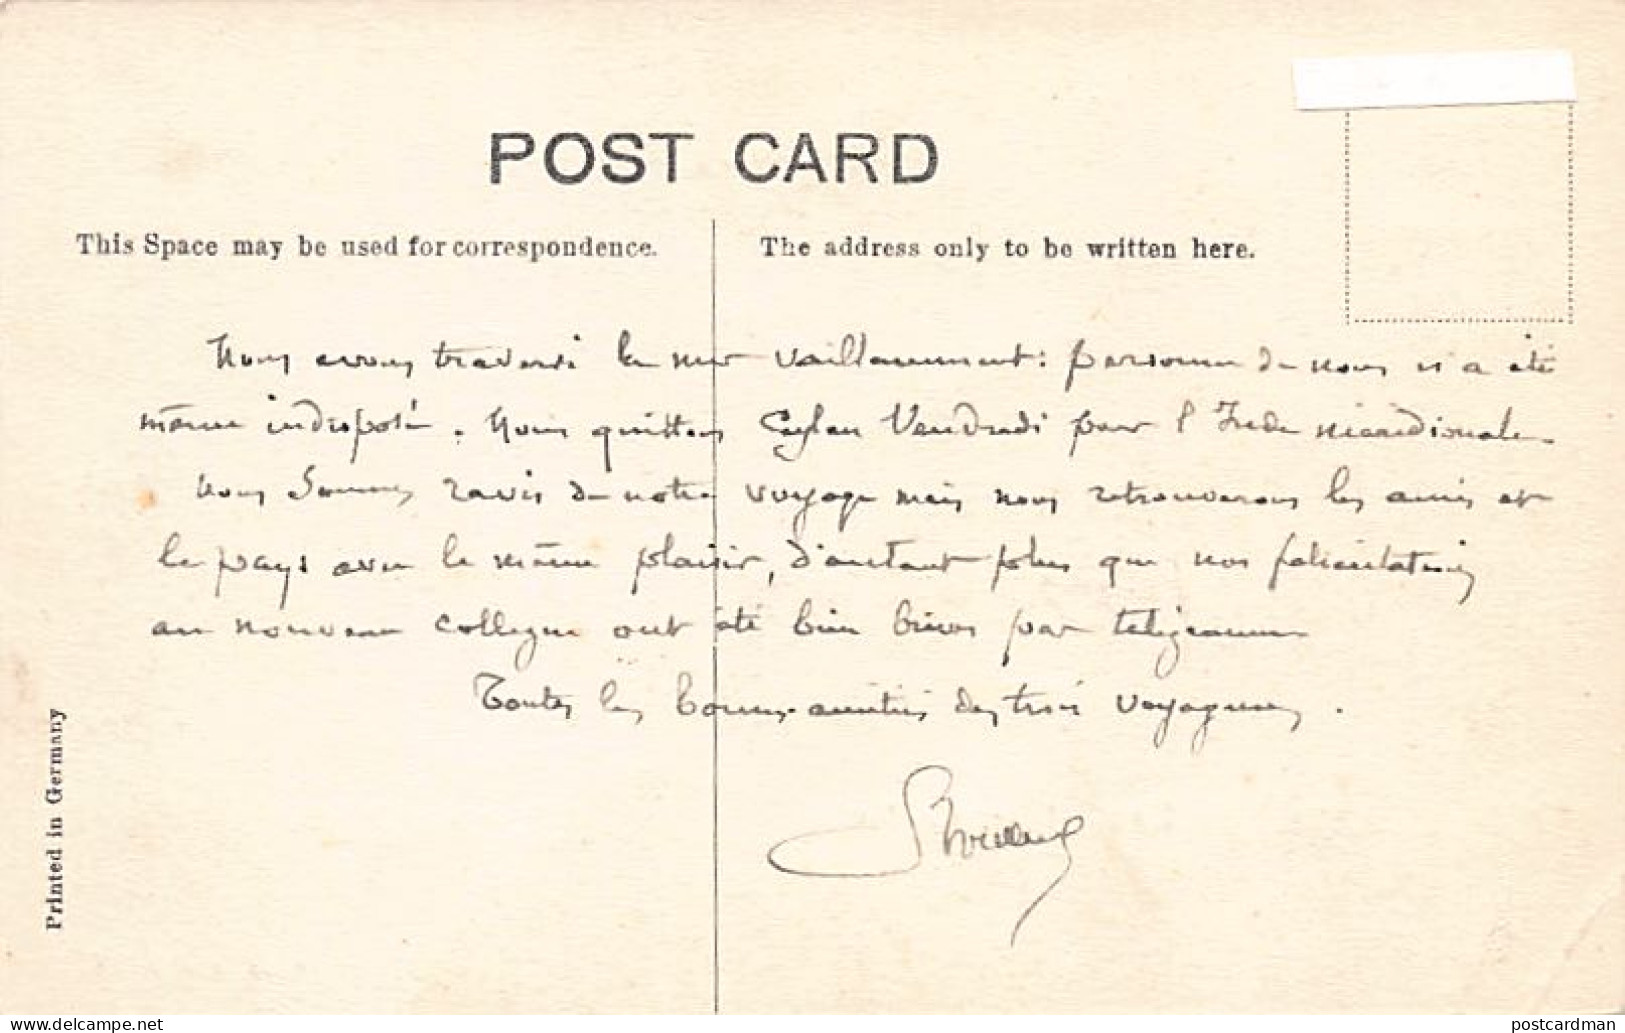 POST CARD
This Space may be used for correspondence.
The address only to be written here.
Nous avons traversé la mer vaillamment: personne de nous n'a été
même indisposé. Nous quittons Ceylan Vendredi pour l'Inde méridionale.
Nous sommes ravis de notre voyage mais nous retrouverons les amis et
le pays avec le même plaisir, d'autant plus que nos félicitations
au nouveau collègue ont été bien brèves par télégramme
Toutes les bonnes amitiés des trois voyageurs.
Printed in Germany
delcampe.net
postcardman